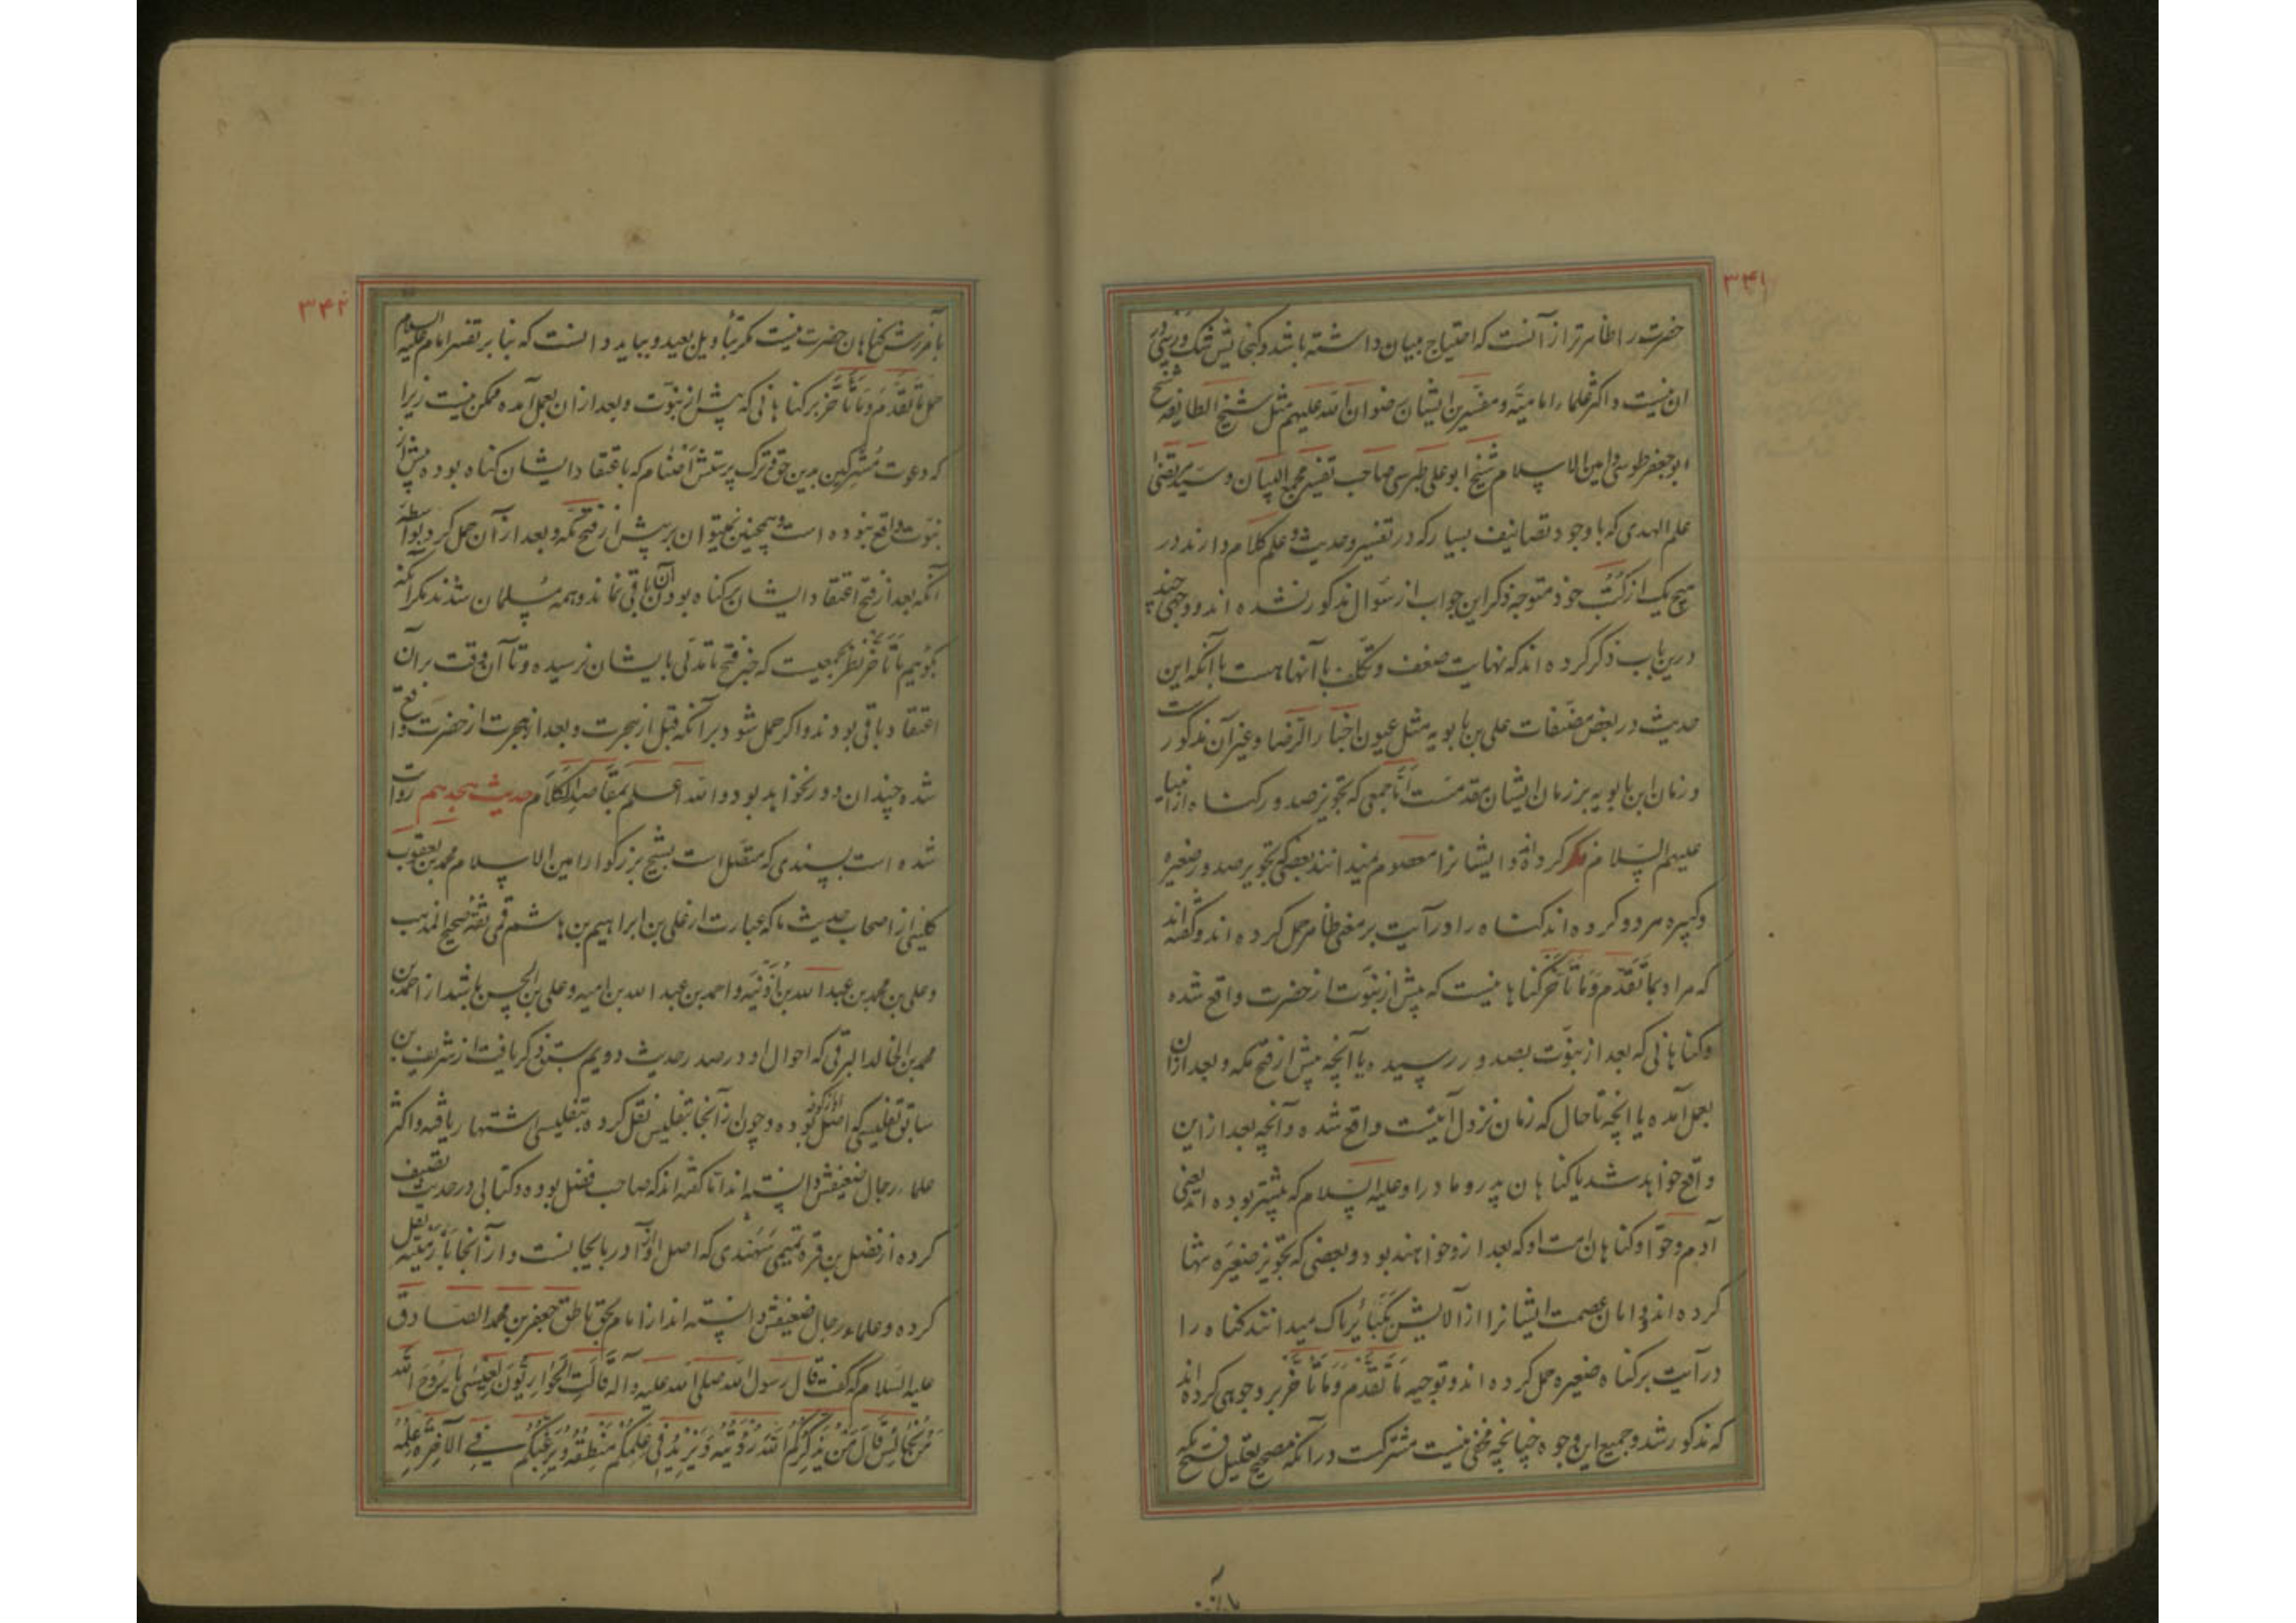 ۳۴۱
حضرت را ظاهرتر از آنست که احتیاج ببیان داشته باشد و گنجایش شک و ریبی در
ان نیست و اکثر علماء امامیّه و مفسّرین ایشان رضوان الله علیهم مثل شیخ الطایفه شیخ
ابوجعفر طوسی و امین الاسلام شیخ ابو علی طبرسی صاحب تفسیر مجمع البیان و سیّد مرتضی
علم الهدی که باوجود تصانیف بسیار که در تفسیر و حدیث و علم کلام دارند در
هیچ یک از کتُب خود متوجه ذکر این جواب از سؤال مذکور نشده اند و وجهی چند
درین باب ذکر کرده اند که نهایت ضعف و تکلّف با آنها هست با آنکه این
حدیث در بعض مصنّفات علی بن بابویه مثل عیون اخبار الرّضا و غیر آن مذکور ست
و زمان ابن بابویه بر زمان ایشان مقدمست امّا جمعی که تجویز صدور کناه از انبیاء
علیهم السّلام کرده اند و ایشانرا معصوم نمیدانند بعضی که تجویز صدور صغیره
و کبیره هر دو کرده اند کناه را در آیت بر معنی ظاهر حمل کرده اند و گفته اند
که مراد بما تَقَدَّم وَمَا تَأَخَّر کناهانیست که پیش از نبوّت از حضرت واقع شده
و کناهانی که بعد از نبوّت بصدور رسیده یا آنچه پیش از فتح مکه و بعد ازان
بعمل آمده یا انچه تا حال که زمان نزول آیتست واقع شده و آنچه بعد از این
واقع خواهد شد یا کناهان پدر و مادر او علیه السّلام که پیشتر بوده اند یعنی
آدم و حوّا و کناهان امت او که بعد از وجود خواهند بود و بعضی که تجویز صغیره تنها
کرده اند و دامان عصمت ایشانرا از آلایش بکَبَائر پاک میدانند کناه را
در آیت بر کناه صغیره حمل کرده اند و توجیه مَا تَقَدَّم وَمَا تَأَخَّر بر وجوهی کرده اند
که مذکور شد و جمیع این وجوه چنانچه مخفی نیست مشترکست در آنکه مصحح تعلیل فتح مکه
۳۴۲
بآمرزش کناهان حضرت نیست مکر بتأویل بعید و بباید دانست که بنا بر تفسیر امام علیه السلام
حمل مَا تَقَدَّمَ وَمَا تَأَخَّرَ بر کناهانی که پیش از نبوّت و بعد ازان بعمل آمده ممکن نیست زیرا
که دعوت مُشرکین بدین حق و ترک پرستش اَصْنام که باعتقاد ایشان کناه بوده پیش از
نبوّت واقع نبوده است و همچنین نمیتوان بر پیش از فتح مکّه و بعد از آن حمل کرد بواسطهٔ
آنکه بعد از فتح اعتقاد ایشان بر کناه بودن آن باقی نماند و همه مُسلمان شدند مکر آنکه
بگوییم مَا تَأَخَّرَ نظر بجمعیست که خبر فتح تا مدتی بایشان نرسیده و تا آن وقت بر آن
اعتقاد باقی بودند و اکر حمل شود بر آنکه قبل از هجرت و بعد از هجرت از حضرت واقع
شده چندان دور نخواهد بود و الله اعلم بمَقَاصِدِ الکَلَام حدیث هجدهم روایت
شده است بسندی که متّصل است بشیخ بزرکوار امین الاسلام محمد بن یعقوب
کلینی از اصحاب حدیث ما که عبارت از علی بن ابراهیم بن هاشم قمی ثقهٔ صحیح المذهب
و علی بن محمد بن عبد الله بن اُذَیْنَه و احمد بن عبد الله بن امیه و علی بن الحسن باشد از احمد بن
محمد بن الخالد البرقی که احوال او در صدر حدیث دویم سبق ذکر یافت از شریف بن
سابق تفلیسی که اصل او از کوفه بوده و چون از آنجا بتفلیس نقل کرده بتفلیسی اشتهار یافته و اکثر
علماء رجال ضعیفش دانسته اند امّا کفته اند که صاحب فضل بوده و کتابی در حدیث تصنیف
کرده از فضل بن قره تمیمی سَهَندی که اصل او از آذربایجانست و از آنجا بأرمَنیّه نقل
کرده و علماء رجال ضعیفش دانسته اند از امام بحق ناطق جعفر بن محمد الصّادق
علیه السّلام که کفت قال رسول الله صلی الله علیه و آله قَالَتِ الحَوَارِیُّونَ لِعِیْسٰی یَا رُوحَ الله
مَنْ نُجَالِسُ قَالَ مَنْ یُذَکِّرُکُمُ اللهَ رُؤْیَتُهُ وَیَزِیْدُ فِی عِلْمِکُمْ مَنْطِقُهُ وَیُرَغِّبُکُمْ فِی الآخِرَةِ عَمَلُهُ